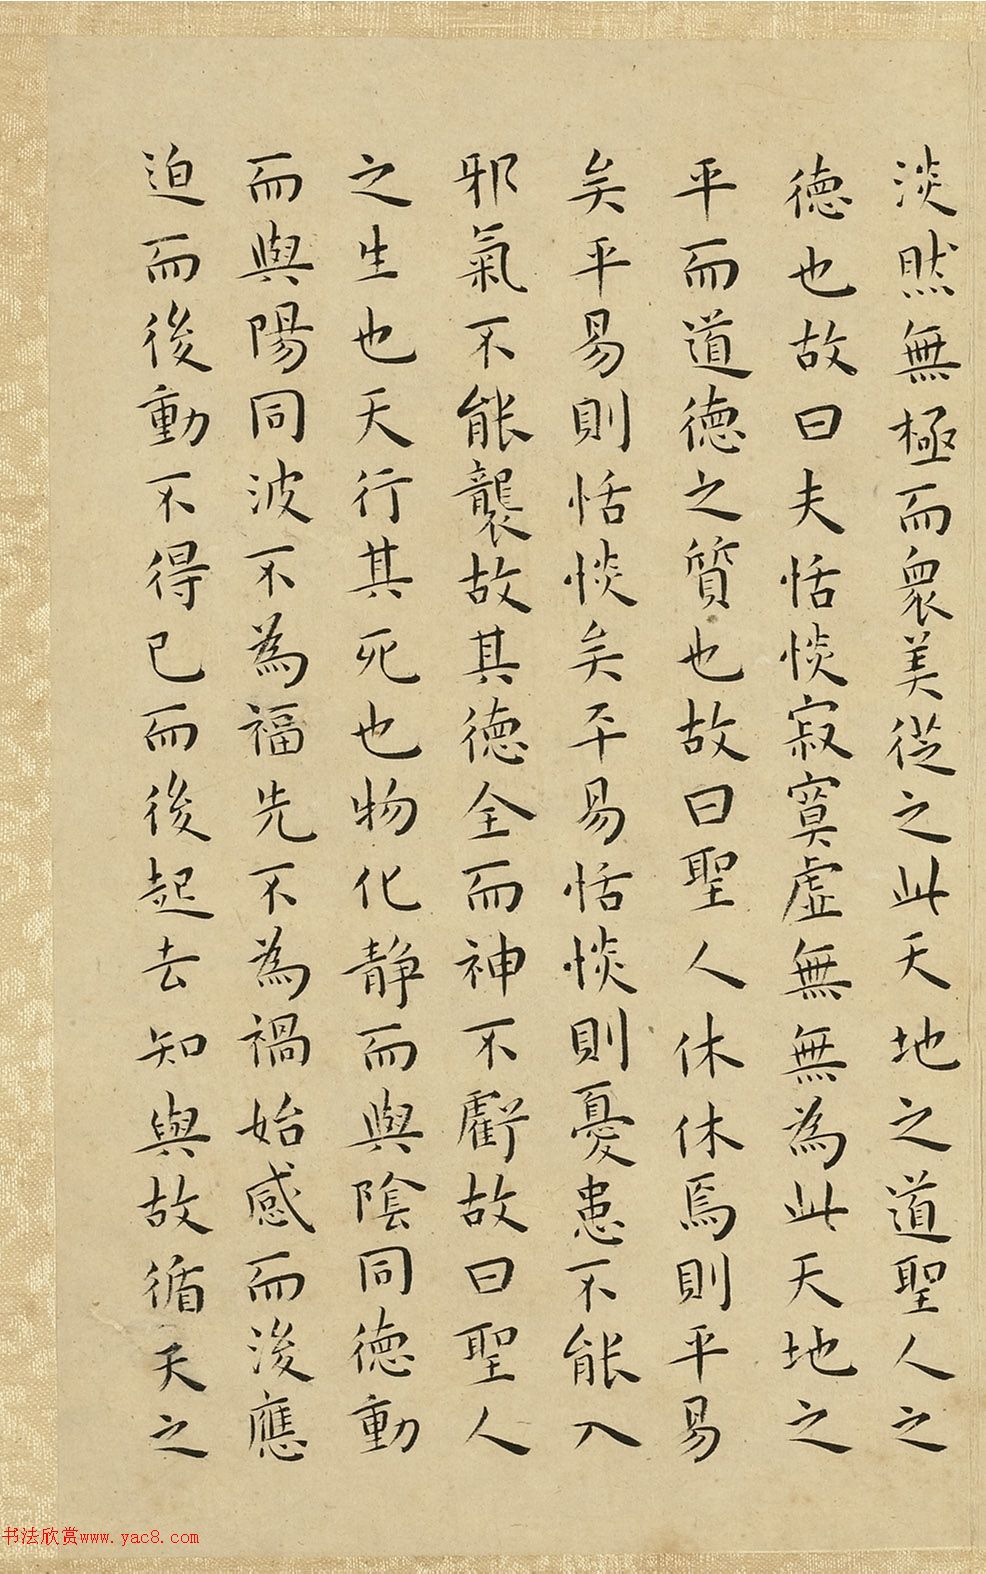 淡然無極而衆美從之此天地之道聖人之
德也故曰夫恬惔寂寞虛無無為此天地之
平而道德之質也故曰聖人休休焉則平易
矣平易則恬惔矣平易恬惔則憂患不能入
邪氣不能襲故其德全而神不虧故曰聖人
之生也天行其死也物化静而與陰同德動
而與陽同波不為福先不為禍始感而後應
迫而後動不得已而後起去知與故循天之
书法欣赏www.yac8.com